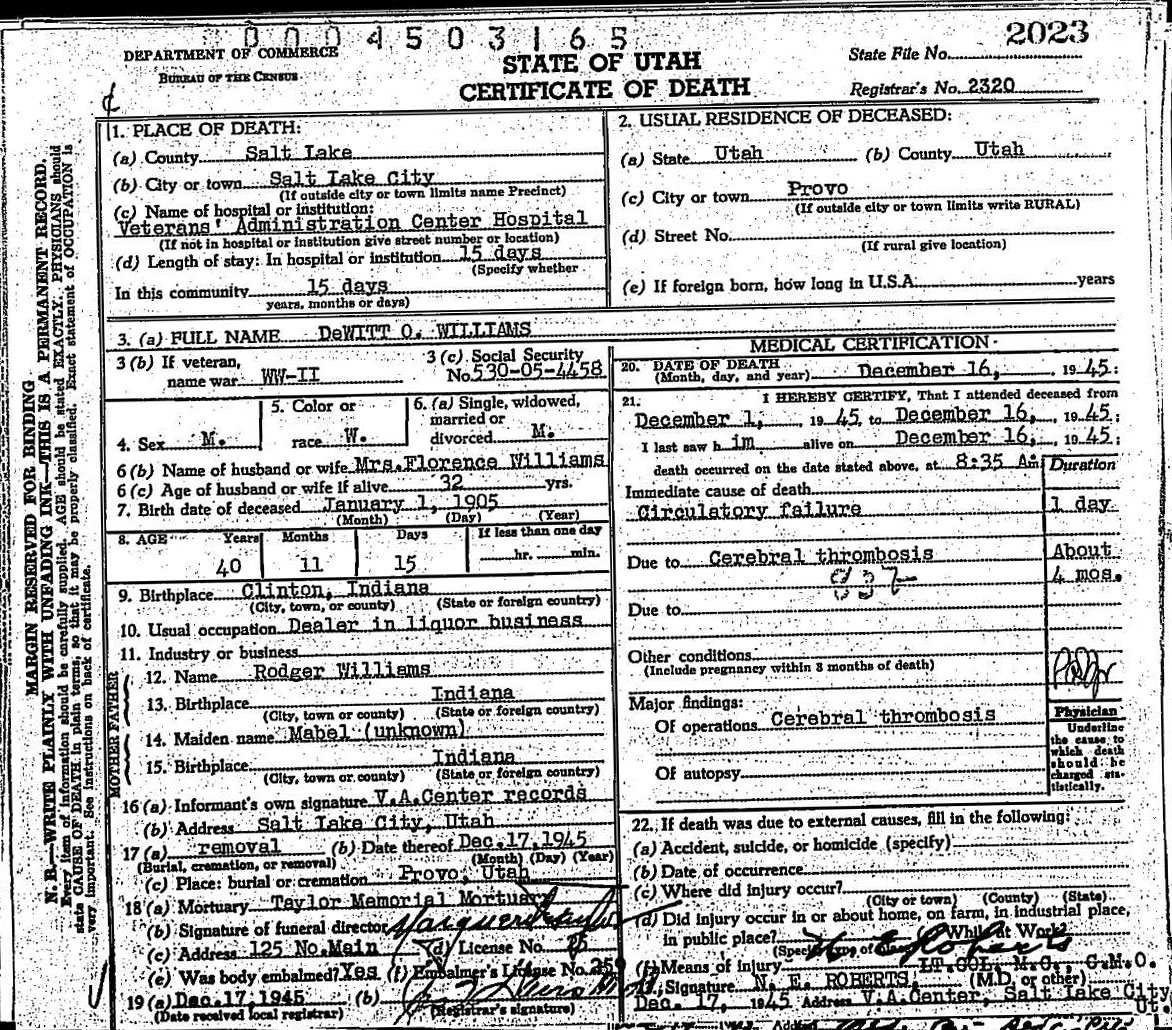 0004503165
2023
DEPARTMENT OF COMMERCE
BUREAU OF THE CENSUS
STATE OF UTAH
CERTIFICATE OF DEATH
State File No.
Registrar's No. 2320
MARGIN RESERVED FOR BINDING
N. B.—WRITE PLAINLY WITH UNFADING INK—THIS IS A PERMANENT RECORD.
Every item of information should be carefully supplied. AGE should be stated EXACTLY. PHYSICIANS should
state CAUSE OF DEATH in plain terms, so that it may be properly classified. Exact statement of OCCUPATION is
very important. See instructions on back of certificate.
1. PLACE OF DEATH:
(a) County Salt Lake
(b) City or town Salt Lake City
(If outside city or town limits name Precinct)
(c) Name of hospital or institution:
Veterans' Administration Center Hospital
(If not in hospital or institution give street number or location)
(d) Length of stay: In hospital or institution 15 days
(Specify whether
In this community 15 days
years, months or days)
2. USUAL RESIDENCE OF DECEASED:
(a) State Utah (b) County Utah
(c) City or town Provo
(If outside city or town limits write RURAL)
(d) Street No.
(If rural give location)
(e) If foreign born, how long in U.S.A. years
3. (a) FULL NAME DeWITT O. WILLIAMS
3 (b) If veteran,
name war WW-II
3 (c) Social Security
No. 530-05-4458
4. Sex M.
5. Color or
race W.
6. (a) Single, widowed,
married or
divorced M.
6 (b) Name of husband or wife Mrs.Florence Williams
6 (c) Age of husband or wife if alive 32 yrs.
7. Birth date of deceased January 1, 1905
(Month) (Day) (Year)
8. AGE Years Months Days If less than one day
40 11 15 hr. min.
9. Birthplace Clinton, Indiana
(City, town, or county) (State or foreign country)
10. Usual occupation Dealer in liquor business
11. Industry or business
FATHER
12. Name Rodger Williams
13. Birthplace Indiana
(City, town or county) (State or foreign country)
MOTHER
14. Maiden name Mabel (unknown)
15. Birthplace Indiana
(City, town or county) (State or foreign country)
16 (a) Informant's own signature V.A.Center records
(b) Address Salt Lake City, Utah
17 (a) removal (b) Date thereof Dec.17,1945
(Burial, cremation, or removal) (Month) (Day) (Year)
(c) Place: burial or cremation Provo, Utah
18 (a) Mortuary Taylor Memorial Mortuary
(b) Signature of funeral director
(c) Address 125 No.Main (d) License No. 25
(e) Was body embalmed? Yes (f) Embalmer's License No. 259
19 (a) Dec.17,1945 (b)
(Date received local registrar) (Registrar's signature)
MEDICAL CERTIFICATION
20. DATE OF DEATH
(Month, day, and year) December 16, 1945:
21. I HEREBY CERTIFY, That I attended deceased from
December 1, 1945, to December 16, 1945:
I last saw him alive on December 16, 1945:
death occurred on the date stated above, at 8:35 Am
Duration
Immediate cause of death
Circulatory failure 1 day
Due to Cerebral thrombosis About
4 mos.
Due to
Other conditions
(Include pregnancy within 3 months of death)
Major findings:
Of operations Cerebral thrombosis
Of autopsy
Physician
Underline
the cause to
which death
should be
charged sta-
tistically.
22. If death was due to external causes, fill in the following:
(a) Accident, suicide, or homicide (specify)
(b) Date of occurrence
(c) Where did injury occur?
(City or town) (County) (State)
(d) Did injury occur in or about home, on farm, in industrial place,
in public place? While at Work?
Means of injury LT.COL. M.C., C.M.O.
Signature N. E. ROBERTS, (M.D. or other)
Dec. 17, 1945 Address V.A.Center, Salt Lake City
Ut